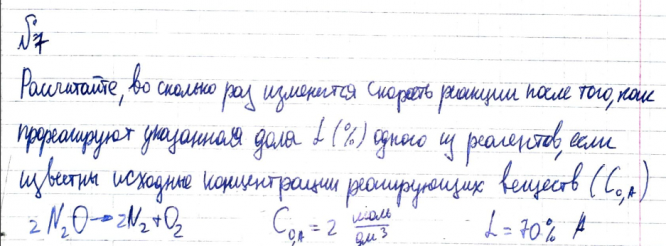 №7
Рассчитайте, во сколько раз изменится скорость реакции после того, как
прореагируют указанная доля L (%) одного из реагентов, если
известны исходные концентрации реагирующих веществ (C₀,A)
2 N₂O → 2N₂ + O₂ C₀,A = 2 моль/дм³ L = 70% A